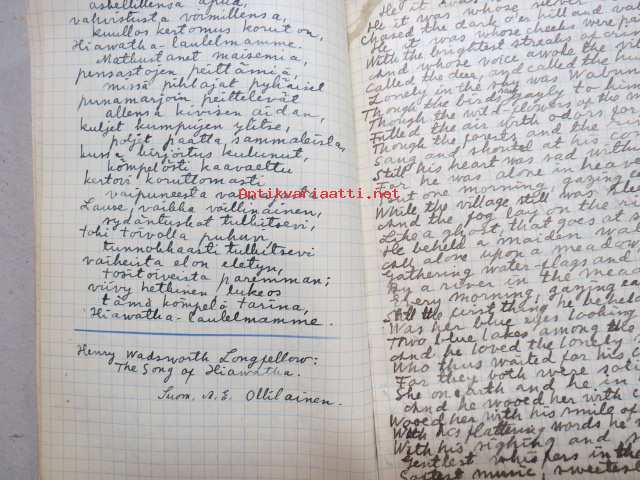 askellillensa apua,
vahvistusta voimillensa,
kuullos kertomus koruton,
Hiawatha-laulelmamme.
Matkustanet maisemia,
pensastojen peittämiä,
missä pihlajat pyhäiset
punamarjoin peittelevät
allensa kivisen aidan,
kuljet kumpujen ylitse,
poljet paatta sammaleista,
kussa kirjoitus kulunut,
kömpelösti kaavaettu
kertovi koruttomasti
vaipuneesta
Lause, vaikka vaillinainen,
sydäntuskat tulkitsevi,
toki toivolla puhuvi
tunnokkaasti tulkitsevi
vaiheista elon eletyn,
tositoiveista paremman;
viivy hetkinen, lukeos
tämä kömpelö tarina,
Hiawatha-laulelmamme.
Henry Wadsworth Longfellow:
The Song of Hiawatha.
Suom. A. E. Ollilainen.
He it was whose silver
Chased the dark o'er hill and
He it was whose cheeks were
With the brightest streaks of crim
And whose voice awoke the vil
Called the deer, and called the hun
Lonely in the sky was Wabun
Though the birds sang gayly to him
Though the wild-flowers of the
Filled the air with odors for
Though the forests and the riv
Sang and shouted at his com
Still his heart was sad within
For he was alone in heaven
But one morning, gazing ea
While the village still was slee
And the fog lay on the ri
Like a ghost, that goes at s
He beheld a maiden wal
All alone upon a meadow
Gathering water-flags and
By a river in the mead
Every morning, gazing ea
Still the first thing he behel
Was her blue eyes looking
Two blue lakes among the
And he loved the lonely
Who thus waited for his
For they both were soli
She on earth and he in
And he wooed her with c
Wooed her with his smile of
With his flattering words he w
With his sighing and
Gentlest whispers in the
Softest music, sweetes
Antikvariaatti.net